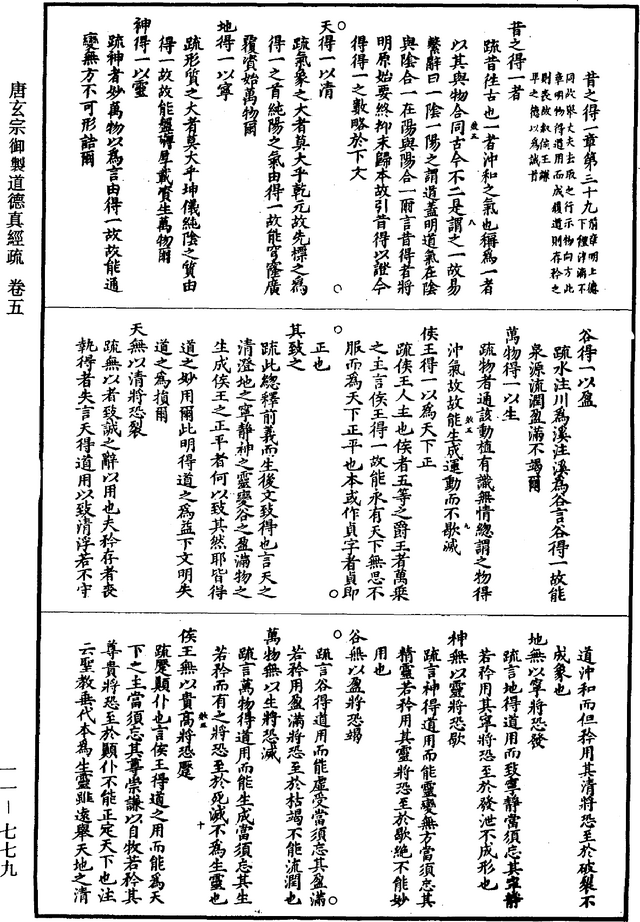 昔之得一章第三十九前章明上德不
下德涉滿不
同故舉大丈夫去取之行示物向方此
章明物得道用而成損道則存矜之
則喪故叙侯王謙
卑之德以為誡首
昔之得一者
疏昔往古也一者沖和之氣也稱為一者
以其與物合同古今不二是謂之一故易
繫辭曰一陰一陽之謂道蓋明道氣在陰
與陰合一在陽與陽合一爾言昔得者將
明原始要終抑末歸本故引昔得以證今
得得一之數略於下文
天得一以清
疏氣象之大者莫大乎乾元故先標之為
得一之首純陽之氣由得一故能穹窿廣
覆資始萬物爾
地得一以寧
疏形質之大者莫大乎坤儀純陰之質由
得一故故能盤礴厚載資生萬物爾
神得一以靈
疏神者妙萬物以為言由得一故故能通
變無方不可形詰爾
谷得一以盈
疏水注川為溪注溪為谷言谷得一故能
泉源流潤盈滿不竭爾
萬物得一以生
疏物者通該動植有識無情總謂之物得
沖氣故故能生成運動而不歇滅
侯王得一以為天下正
疏侯王人主也侯者五等之爵王者萬乘
之主言侯王得一故能永有天下無思不
服而為天下正平也本或作貞字者貞即
正也
其致之
疏此總釋前義而生後文致得也言天之
清澄地之寧靜神之靈變谷之盈滿物之
生成侯王之正平者何以致其然耶皆得
道之妙用爾此明得道之為益下文明失
道之為損爾
天無以清將恐裂
疏無以者致誡之辭以用也夫矜存者喪
執得者失言天得道用以致清浮若不守
道沖和而但矜用其清將恐至於破裂不
成象也
地無以寧將恐發
疏言地得道用而致寧靜當須忘其寧靜
若矜用其寧將恐至於發泄不成形也
神無以靈將恐歇
疏言神得道用而能靈變無方當須忘其
精靈若矜用其靈將恐至於歇絕不能妙
用也
谷無以盈將恐竭
疏言谷得道用而能虛受當須忘其盈滿
若矜用盈滿將恐至於枯竭不能流潤也
萬物無以生將恐滅
疏言萬物得道用而能生成當須忘其生
若矜而有之將恐至於死滅不為生靈也
侯王無以貴高將恐蹷
疏蹷顛仆也言侯王得道之用而能為天
下之主當須忘其尊崇謙以自牧若矜其
尊貴將恐至於顛仆不能正定天下也注
云聖教垂代本為生靈雖遠舉天地之清
唐玄宗御製道德真經疏 卷五
一一—七七九